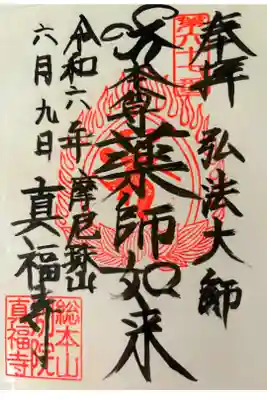 奉拝
弘法大師
本尊薬師如来
令和六年
六月九日
摩尼珠山
真福寺
総本山
真福寺